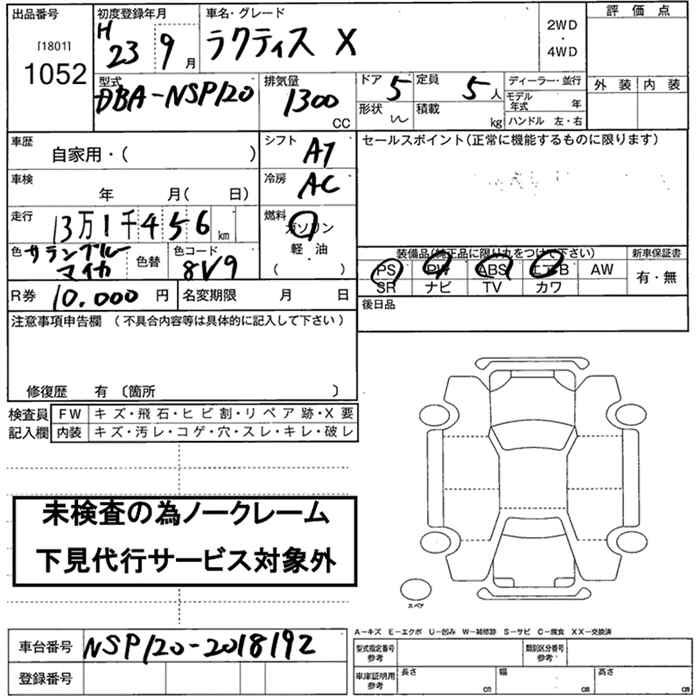 出品番号
[1801]
1052
初度登録年月
H
23 9月
車名・グレード
ラクティス X
2WD
・
4WD
評価点
外装 内装
型式
DBA-NSP120
排気量
1300
CC
ドア 5
定員 5人
形状
積載 kg
ディーラー・並行
モデル年式 年
ハンドル 左・右
車歴
自家用・( )
シフト AT
セールスポイント(正常に機能するものに限ります)
車検
年 月( 日)
冷房 AC
走行
13万1千456km
燃料
ガソリン
軽・油
( )
色
サランブルーマイカ
色替
色コード
8V9
装備品(純正品に限り丸をつけて下さい)
PS PW ABS エアB AW
SR ナビ TV カワ
新車保証書
有・無
R券 10,000円
名変期限 月 日
後日品
注意事項申告欄 (不具合内容等は具体的に記入して下さい)
修復歴 有 〔箇所 〕
検査員記入欄
FW キズ・飛石・ヒビ割・リペア跡・X要
内装 キズ・汚レ・コゲ・穴・スレ・キレ・破レ
未検査の為ノークレーム
下見代行サービス対象外
スペア
車台番号 NSP120-2018192
登録番号
A-キズ E-エクボ U-凹み W-補修跡 S-サビ C-腐食 XX-交換済
型式指定番号
参考
類別区分番号
参考
車庫証明用
参考
長さ cm
幅 cm
高さ cm